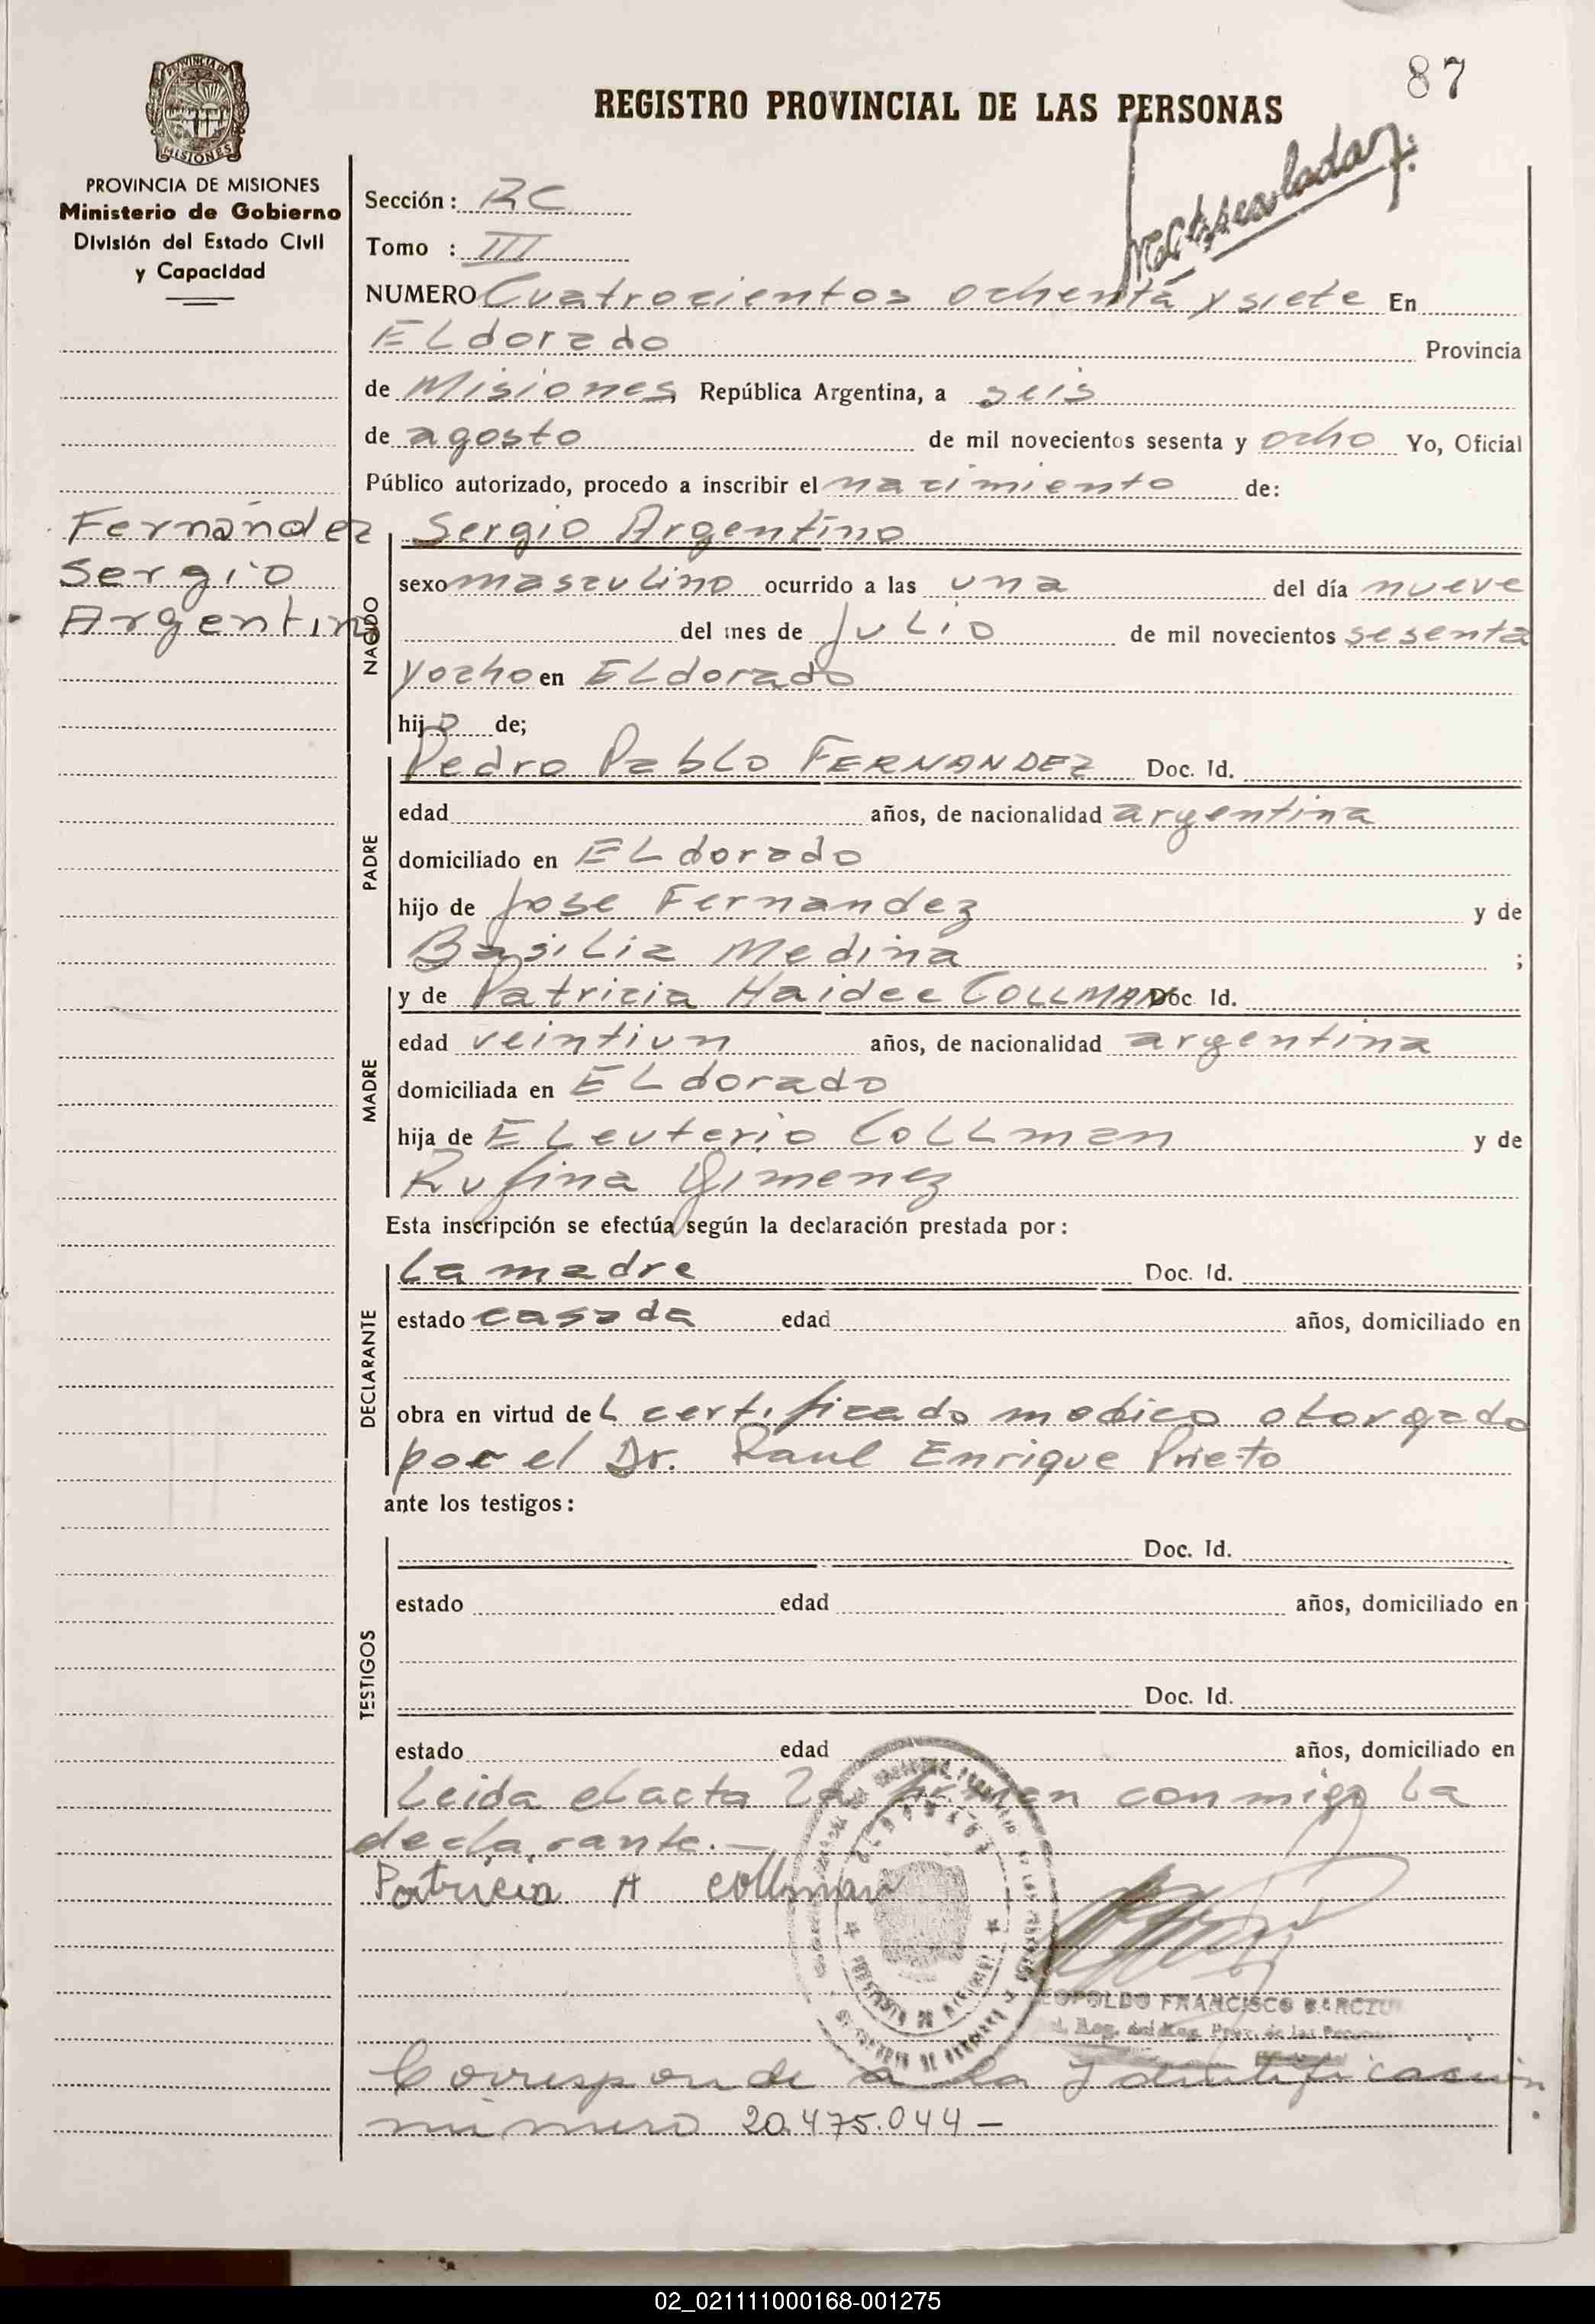 87
REGISTRO PROVINCIAL DE LAS PERSONAS
PROVINCIA DE MISIONES
MISIONES
PROVINCIA DE MISIONES
Ministerio de Gobierno
División del Estado Civil
y Capacidad
Fernández
Sergio
Argentino
Sección: RC
Tomo : III
NUMERO Cuatrocientos ochenta y siete En
ELdorado Provincia
de Misiones, República Argentina, a seis
de agosto de mil novecientos sesenta y ocho Yo, Oficial
Público autorizado, procedo a inscribir el nacimiento de:
NACIDO
Sergio Argentino
sexo masculino ocurrido a las una del día nueve
del mes de Julio de mil novecientos sesenta
y ocho en ELdorado
hijo de;
PADRE
Pedro Pablo FERNANDEZ Doc. Id.
edad años, de nacionalidad argentina
domiciliado en ELdorado
hijo de Jose Fernandez y de
Basilia Medina ;
MADRE
y de Patricia Haidee COLLMAN Doc. Id.
edad veintiun años, de nacionalidad argentina
domiciliada en ELdorado
hija de ELeuterio CoLLman y de
Rufina Gimenez
Esta inscripción se efectúa según la declaración prestada por:
DECLARANTE
La madre Doc. Id.
estado casada edad años, domiciliado en
obra en virtud del certificado medico otorgado
por el Dr. Raul Enrique Prieto
ante los testigos:
TESTIGOS
Doc. Id.
estado edad años, domiciliado en
Doc. Id.
estado edad años, domiciliado en
Leida el acta la firman conmigo la
declarante.-
Patricia H Collman
LEOPOLDO FRANCISCO
Corresponde a la Identificación
número 20.475.044-
02_021111000168-001275